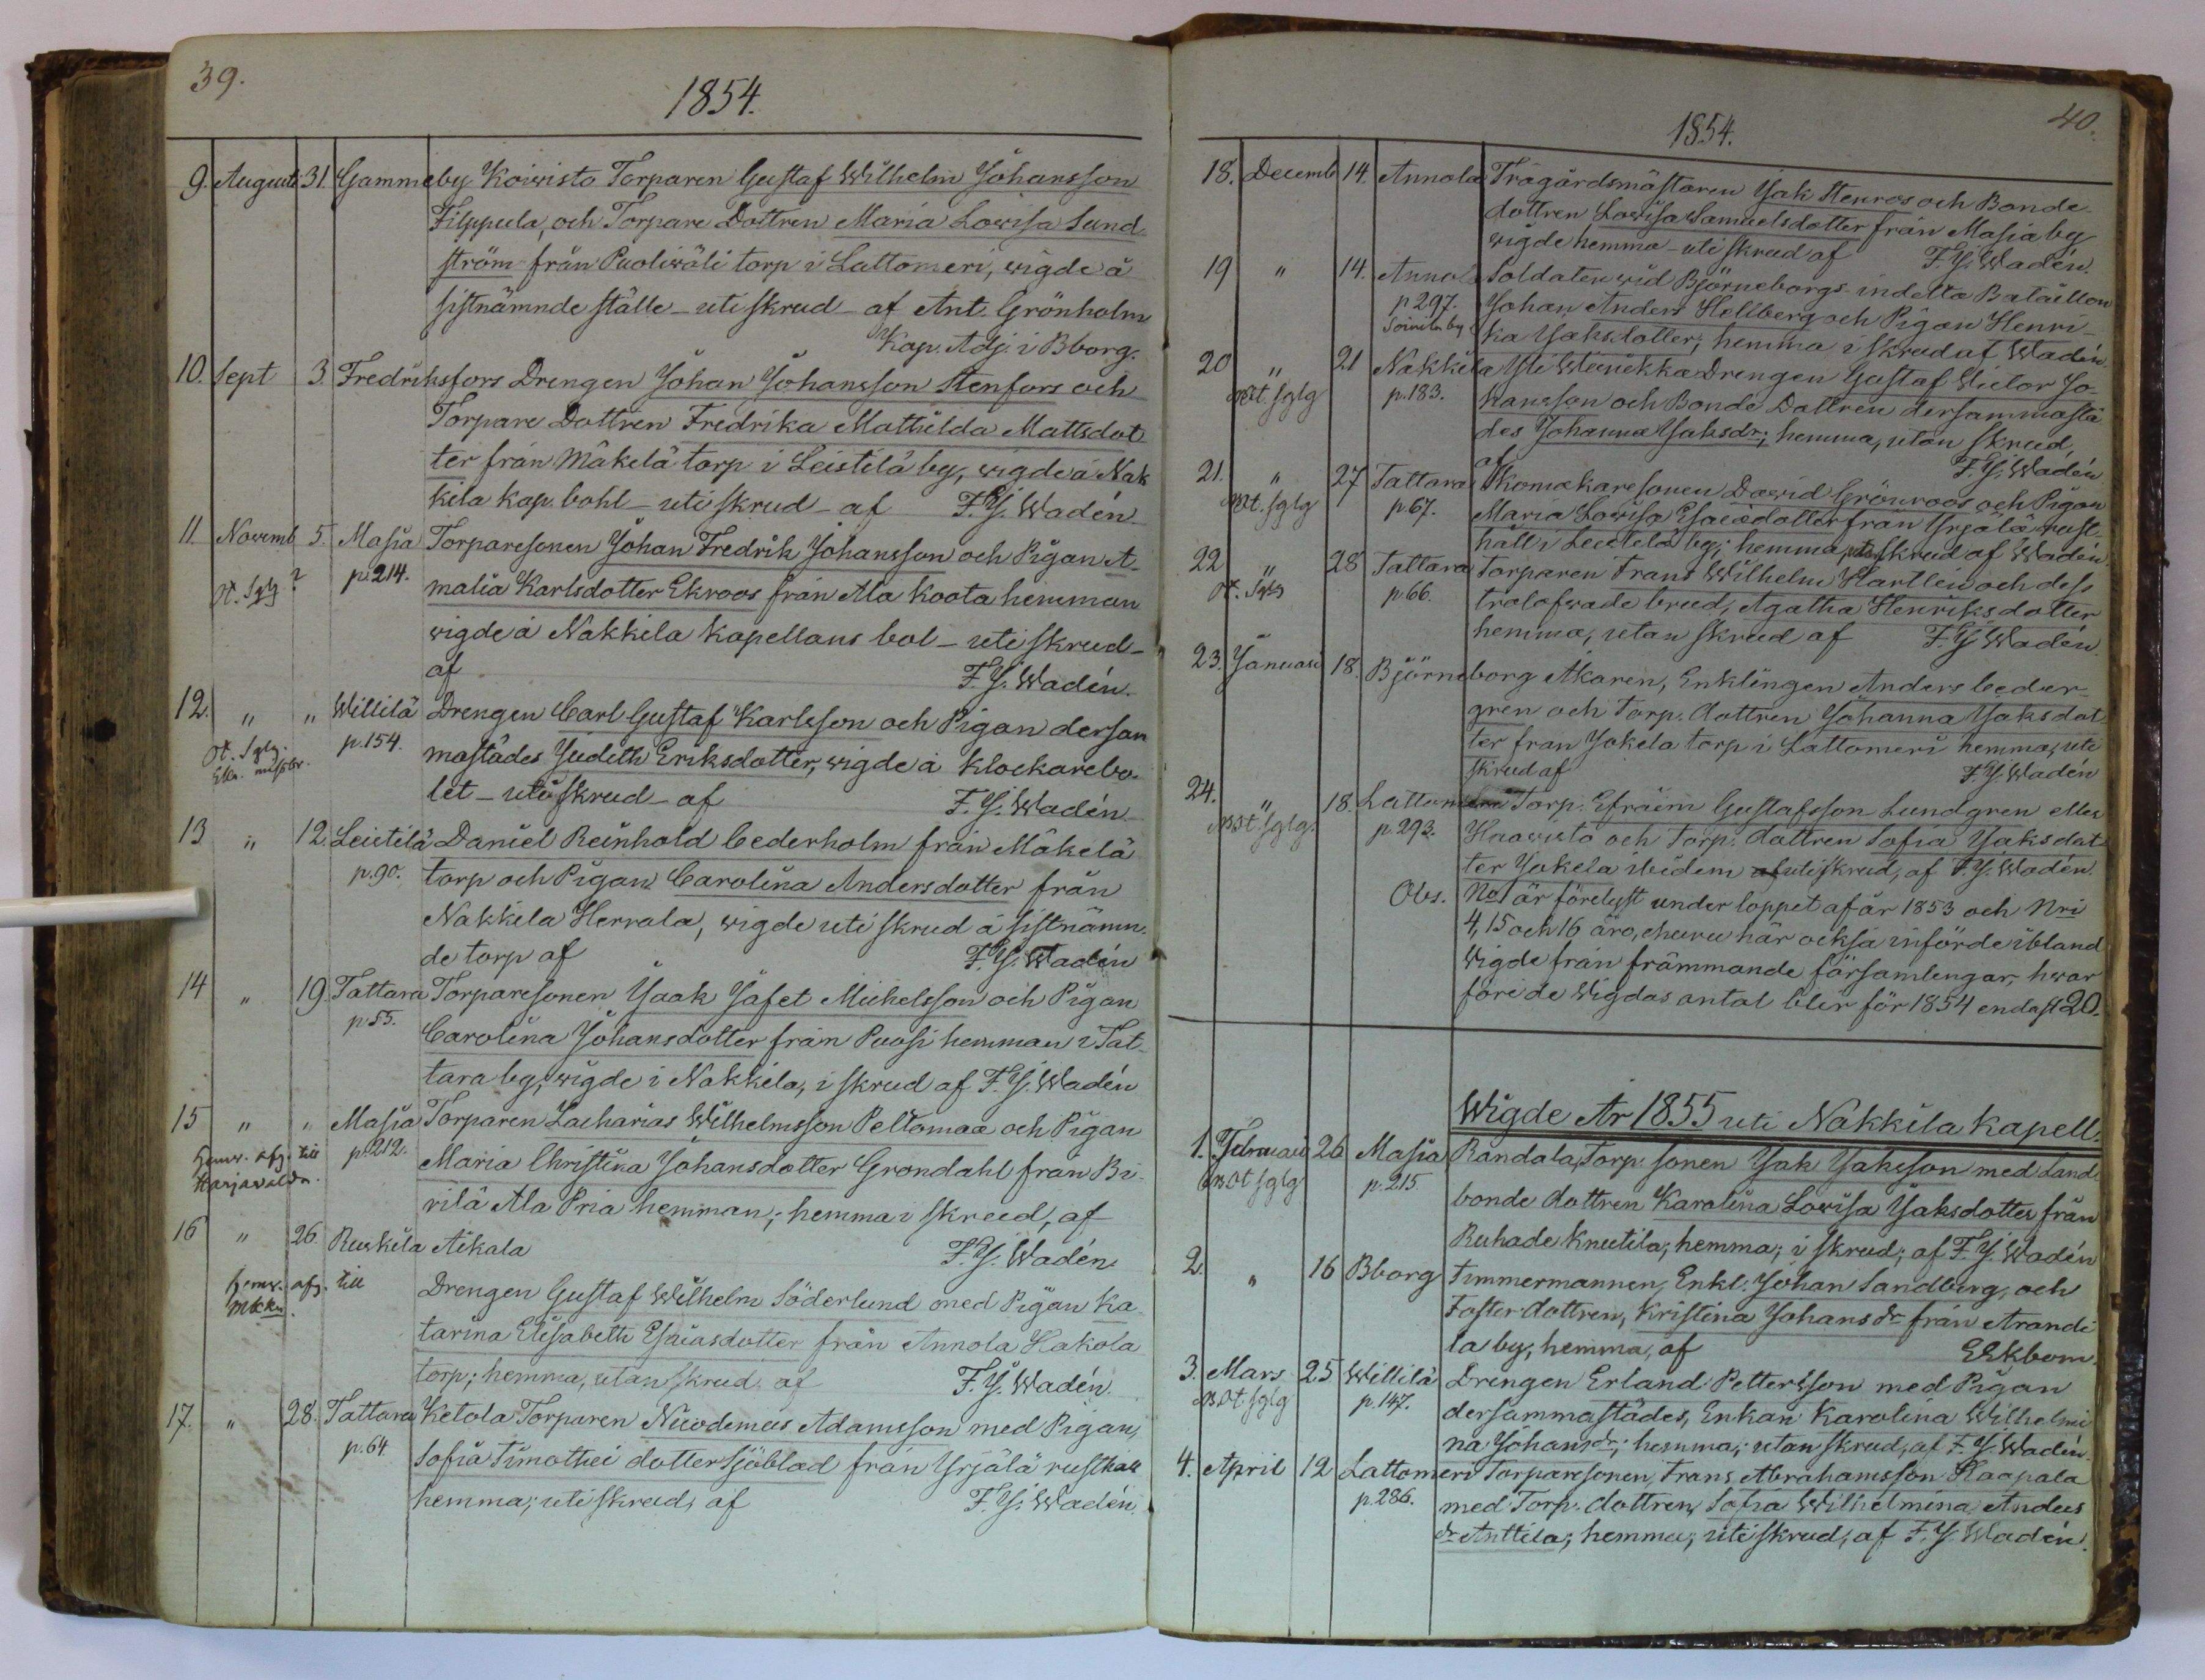 39.
1854.
9. Augusti 31. Gammelby Koivisto Torparen Gustaf Wilhelm Johansson
Filppula, och Torpare Dottren Maria Lovisa Sund
ström från Puoliväli torp i Lattomeri, wigde å
sistnämnde ställe - uti skrud - af Ant. Grönholm
Kap. Adj. i Bborg.
10. Sept 3. Fredriksfors Drengen Johan Johansson Stenfors och
Torpare Dottren Fredrika Mathilda Mattsdot
ter från Mäkelä torp i Leistilä by, wigde å Nak
kila Kap. bohl - uti skrud - af F. J. Wadén
11. Novemb 5. Masia Torparesonen Johan Fredrik Johansson och Pigan A-
Ot. Sglg ? p. 214. malia Karlsdotter Ekroos från Ala Koota hemman
wigde å Nakkila Kapellans bol - uti skrud -
af F. J. Wadén.
12. " " Willilä Drengen Carl Gustaf Karlsson och Pigan dersam
Ot. Sglg. p. 154. mastädes Judith Eriksdotter, wigde å Klockarebo-
let - uti skrud - af F. J. Wadén
13 " 12. Leistilä Daniel Reinhold Cederholm från Mäkelä
p. 90. torp och Pigan Carolina Andersdotter från
Nakkila Herrala, wigde uti skrud å sistnämn-
de torp af F. J. Wadén
14 " 19 Tattara Torparesonen Isaak Jafet Michelsson och Pigan
p. 55. Carolina Johansdotter från Puosi hemman i Tat-
tara by, wigde i Nakkila, i skrud af F. J. Wadén
15 " " Masia Torparen Zacharias Wilhelmsson Peltomaa och Pigan
p. 212. Maria Christina Johansdotter Grondahl från Bi-
till Harjavalda. rilä Ala Pria hemman; hemma i skrud, af
16 " 26. Ruskila Aikala F. J. Wadén.
afg. till Drengen Gustaf Wilhelm Söderlund med Pigan Ka-
tarina Elisabeth Esaiasdotter från Annola Hakola
torp; hemma, utan skrud, af F. J. Wadén.
17. " 28. Tattara Ketola Torparen Nicodemus Adamsson med Pigan,
p. 64. Sofia Timothei dotter Sjöblad från Yrjälä rusthåll
hemma; uti skrud, af F. J. Wadén.
40.
1854.
18. Decemb 14. Annola Trägårdsmästaren Isak Stenros och Bonde-
dottren Lovisa Samuelsdotter från Masia by
wigde hemma - uti skrud af F. J. Wadén.
19 " 14. Annola Soldaten wid Björneborgs indelta Bataillon
p 297. Johan Anders Hellberg och Pigan Henri-
Soinila by ka Isaksdotter; hemma i skrud af Wadén.
20 " 21 Nakkila Yli Wiinikka Drengen Gustaf Victor Jo-
Ot. sglg p. 183. hansson och Bonde Dottren dersammastä
des Johanna Isaksdr; hemma, utan skrud,
af F. J. Wadén
21. " 27 Tattara Skomakaresonen Dawid Grönroos och Pigan
Ot. sglg p. 67. Maria Lovisa Esaiædotter från Yrjälä rust-
håll i Leistilä by; hemma, uti skrud af Wadén.
22 " 28 Tattara Torparen Frans Wilhelm Martlin och dess
Ot. Sglg p. 66. trolofwade brud, Agatha Henriksdotter
hemma, utan skrud af F. J. Wadén.
23. Januari 18. Björneborg Åkaren, Enklingen Anders Ceder-
gren och Torp. dottren Johanna Isaksdot
ter från Jokela torp i Lattomeri hemma, uti
skrud af F. J. Wadén
24. " 18. Lattomeri Torp. Efraim Gustafsson Lundgren Ala
Ot. sglg. p. 293. Haavisto och Torp. dottren Sofia Isaksdot
ter Jokela ibidem uti skrud, af F. J. Wadén.
Obs. No 1 är förelyst under loppet af år 1853 och Nri
4, 15 och 16 äro, ehuru här också införde ibland
wigde från främmande församlingar, hwar
före de wigdas antal blir för 1854 endast 20.
Wigde År 1855 uti Nakkila Kapell.
1. Februari 26 Masia Randala, Torp. sonen Isak Isaksson med Land
Ot sglg p. 215. bonde dottren Karolina Lovisa Isaksdotter från
Ruhade Knutila; hemma; i skrud; af F. J. Wadén
2. " 16 Bborg Timmermannen, Enkl. Johan Sandberg, och
Foster dottren, Kristina Johansdr från Arandi
la by, hemma, af E Ekbom.
3. Mars 25 Willilä Drengen Erland Pettersson med Pigan
Ot sglg p. 147. dersammastädes, Enkan Karolina Wilhelmi
na Johansdr; hemma; utan skrud, af F. J. Wadén.
4. April 12 Lattomeri Torparesonen Frans Abrahamsson Haapala
p. 286. med Torp. dottren Sofia Wilhelmina Anders
dr Anttila; hemma; uti skrud, af F. J. Wadén.